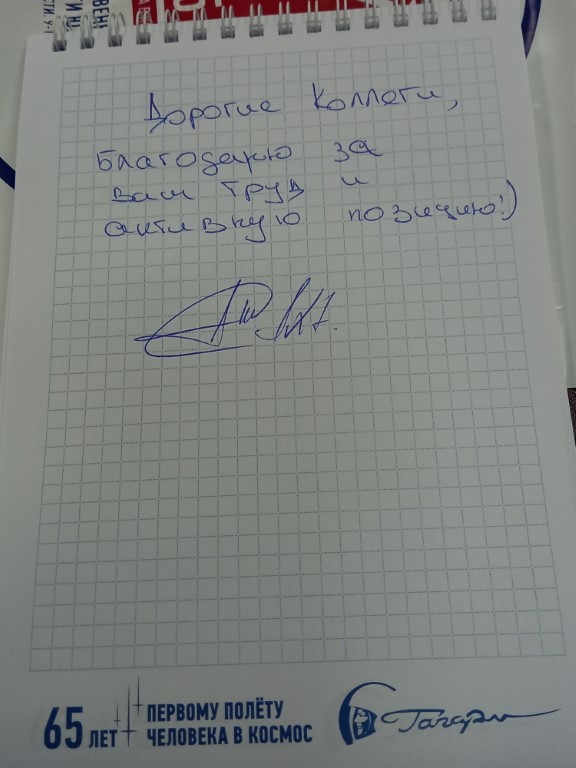 Дорогие Коллеги,
Благодарю за
ваш труд и
активную позицию!)
65 ЛЕТ
ПЕРВОМУ ПОЛЁТУ
ЧЕЛОВЕКА В КОСМОС
Гагарин